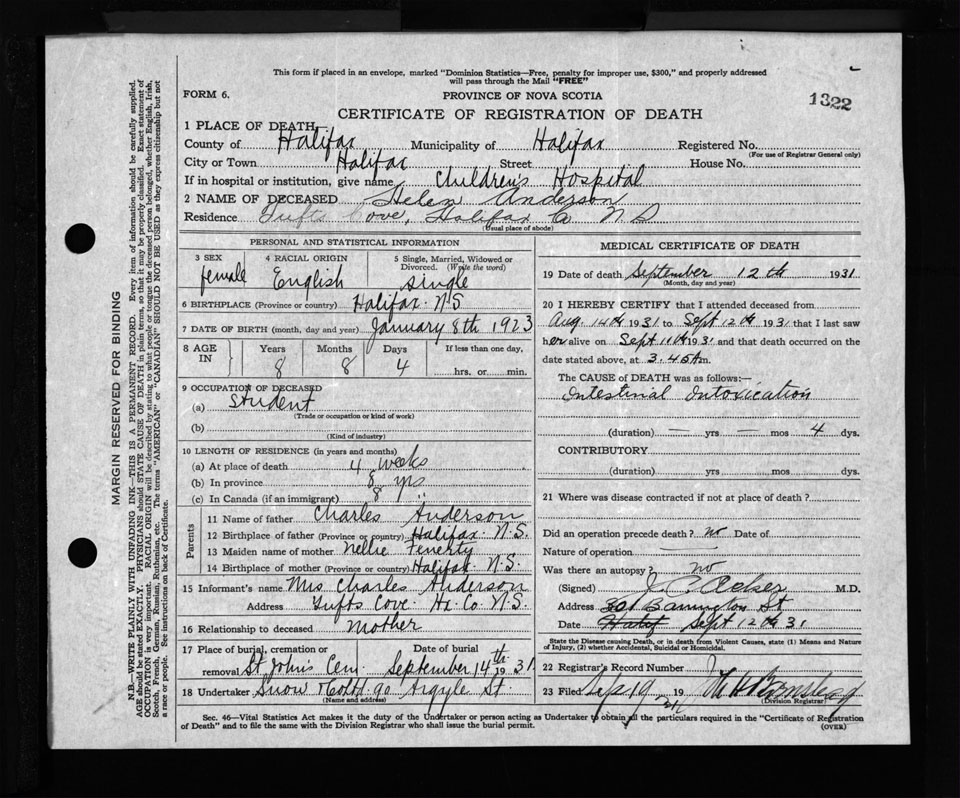 This form if placed in an envelope, marked "Dominion Statistics—Free, penalty for improper use, $300," and properly addressed
will pass through the Mail "FREE"
FORM 6.
PROVINCE OF NOVA SCOTIA
1322
CERTIFICATE OF REGISTRATION OF DEATH
1 PLACE OF DEATH
County of Halifax Municipality of Halifax Registered No.
(For use of Registrar General only)
City or Town Halifax Street House No.
If in hospital or institution, give name Children's Hospital
2 NAME OF DECEASED Helen Anderson
Residence Tufts Cove, Halifax Co. N S
(Usual place of abode)
PERSONAL AND STATISTICAL INFORMATION
3 SEX 4 RACIAL ORIGIN 5 Single, Married, Widowed or
Divorced. (Write the word)
female English single
6 BIRTHPLACE (Province or country) Halifax N.S
7 DATE OF BIRTH (month, day and year) January 8th 1923
8 AGE IN Years Months Days If less than one day,
8 8 4 hrs. or min.
9 OCCUPATION OF DECEASED
(a) Student
(Trade or occupation or kind of work)
(b)
(Kind of industry)
10 LENGTH OF RESIDENCE (in years and months)
(a) At place of death 4 weeks
(b) In province 8 yrs
(c) In Canada (if an immigrant) 8 "
Parents
11 Name of father Charles Anderson
12 Birthplace of father (Province or country) Halifax N.S.
13 Maiden name of mother Nellie Fenerty
14 Birthplace of mother (Province or country) Halifax N.S.
15 Informant's name Mrs Charles Anderson
Address Tufts Cove Hx. Co. N.S.
16 Relationship to deceased Mother
17 Place of burial, cremation or Date of burial
removal St John's Cem. September 14th 1931
18 Undertaker Snow & Co Ltd 90 Argyle St.
(Name and address)
MEDICAL CERTIFICATE OF DEATH
19 Date of death September 12th 1931
(Month, day and year)
20 I HEREBY CERTIFY that I attended deceased from
Aug. 14th 1931 to Sept 12th 1931 that I last saw
her alive on Sept 11th 1931 and that death occurred on the
date stated above, at 3.45 A m.
The CAUSE OF DEATH was as follows:—
Intestinal Intoxication
(duration) — yrs — mos 4 dys.
CONTRIBUTORY
(duration) yrs mos dys.
21 Where was disease contracted if not at place of death?
Did an operation precede death? no Date of
Nature of operation
Was there an autopsy? no
(Signed) M.D.
Address Barrington St
Date Sept 12th 31
State the Disease causing Death, or in death from Violent Causes, state (1) Means and Nature
of Injury, (2) whether Accidental, Suicidal or Homicidal.
22 Registrar's Record Number
23 Filed 19 19
(Division Registrar)
Sec. 46—Vital Statistics Act makes it the duty of the Undertaker or person acting as Undertaker to obtain all the particulars required in the "Certificate of Registration
of Death" and to file the same with the Division Registrar who shall issue the burial permit.
(OVER)
MARGIN RESERVED FOR BINDING
N.B.—WRITE PLAINLY WITH UNFADING INK—THIS IS A PERMANENT RECORD. Every item of information should be carefully supplied.
AGE should be stated EXACTLY. PHYSICIANS should STATE CAUSE OF DEATH in plain terms, so that it may be properly classified. Exact statement of
OCCUPATION is very important. RACIAL ORIGIN will be described by stating to what people or tongue the deceased person belonged, whether English, Irish,
Scotch, French, German, Russian, Ruthenian, etc. The terms "AMERICAN" or "CANADIAN" SHOULD NOT BE USED as they express citizenship but not
a race or people. See instructions on back of Certificate.